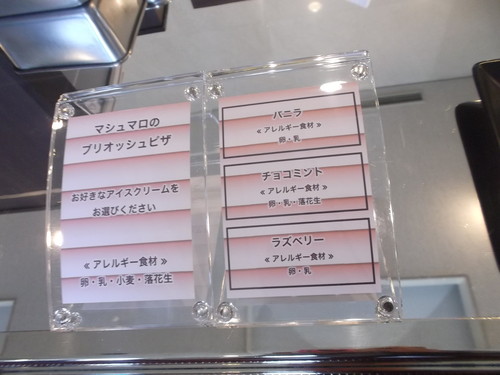 マシュマロの
ブリオッシュピザ
お好きなアイスクリームを
お選びください
≪ アレルギー食材 ≫
卵・乳・小麦・落花生
バニラ
≪ アレルギー食材 ≫
卵・乳
チョコミント
≪ アレルギー食材 ≫
卵・乳・落花生
ラズベリー
≪ アレルギー食材 ≫
卵・乳